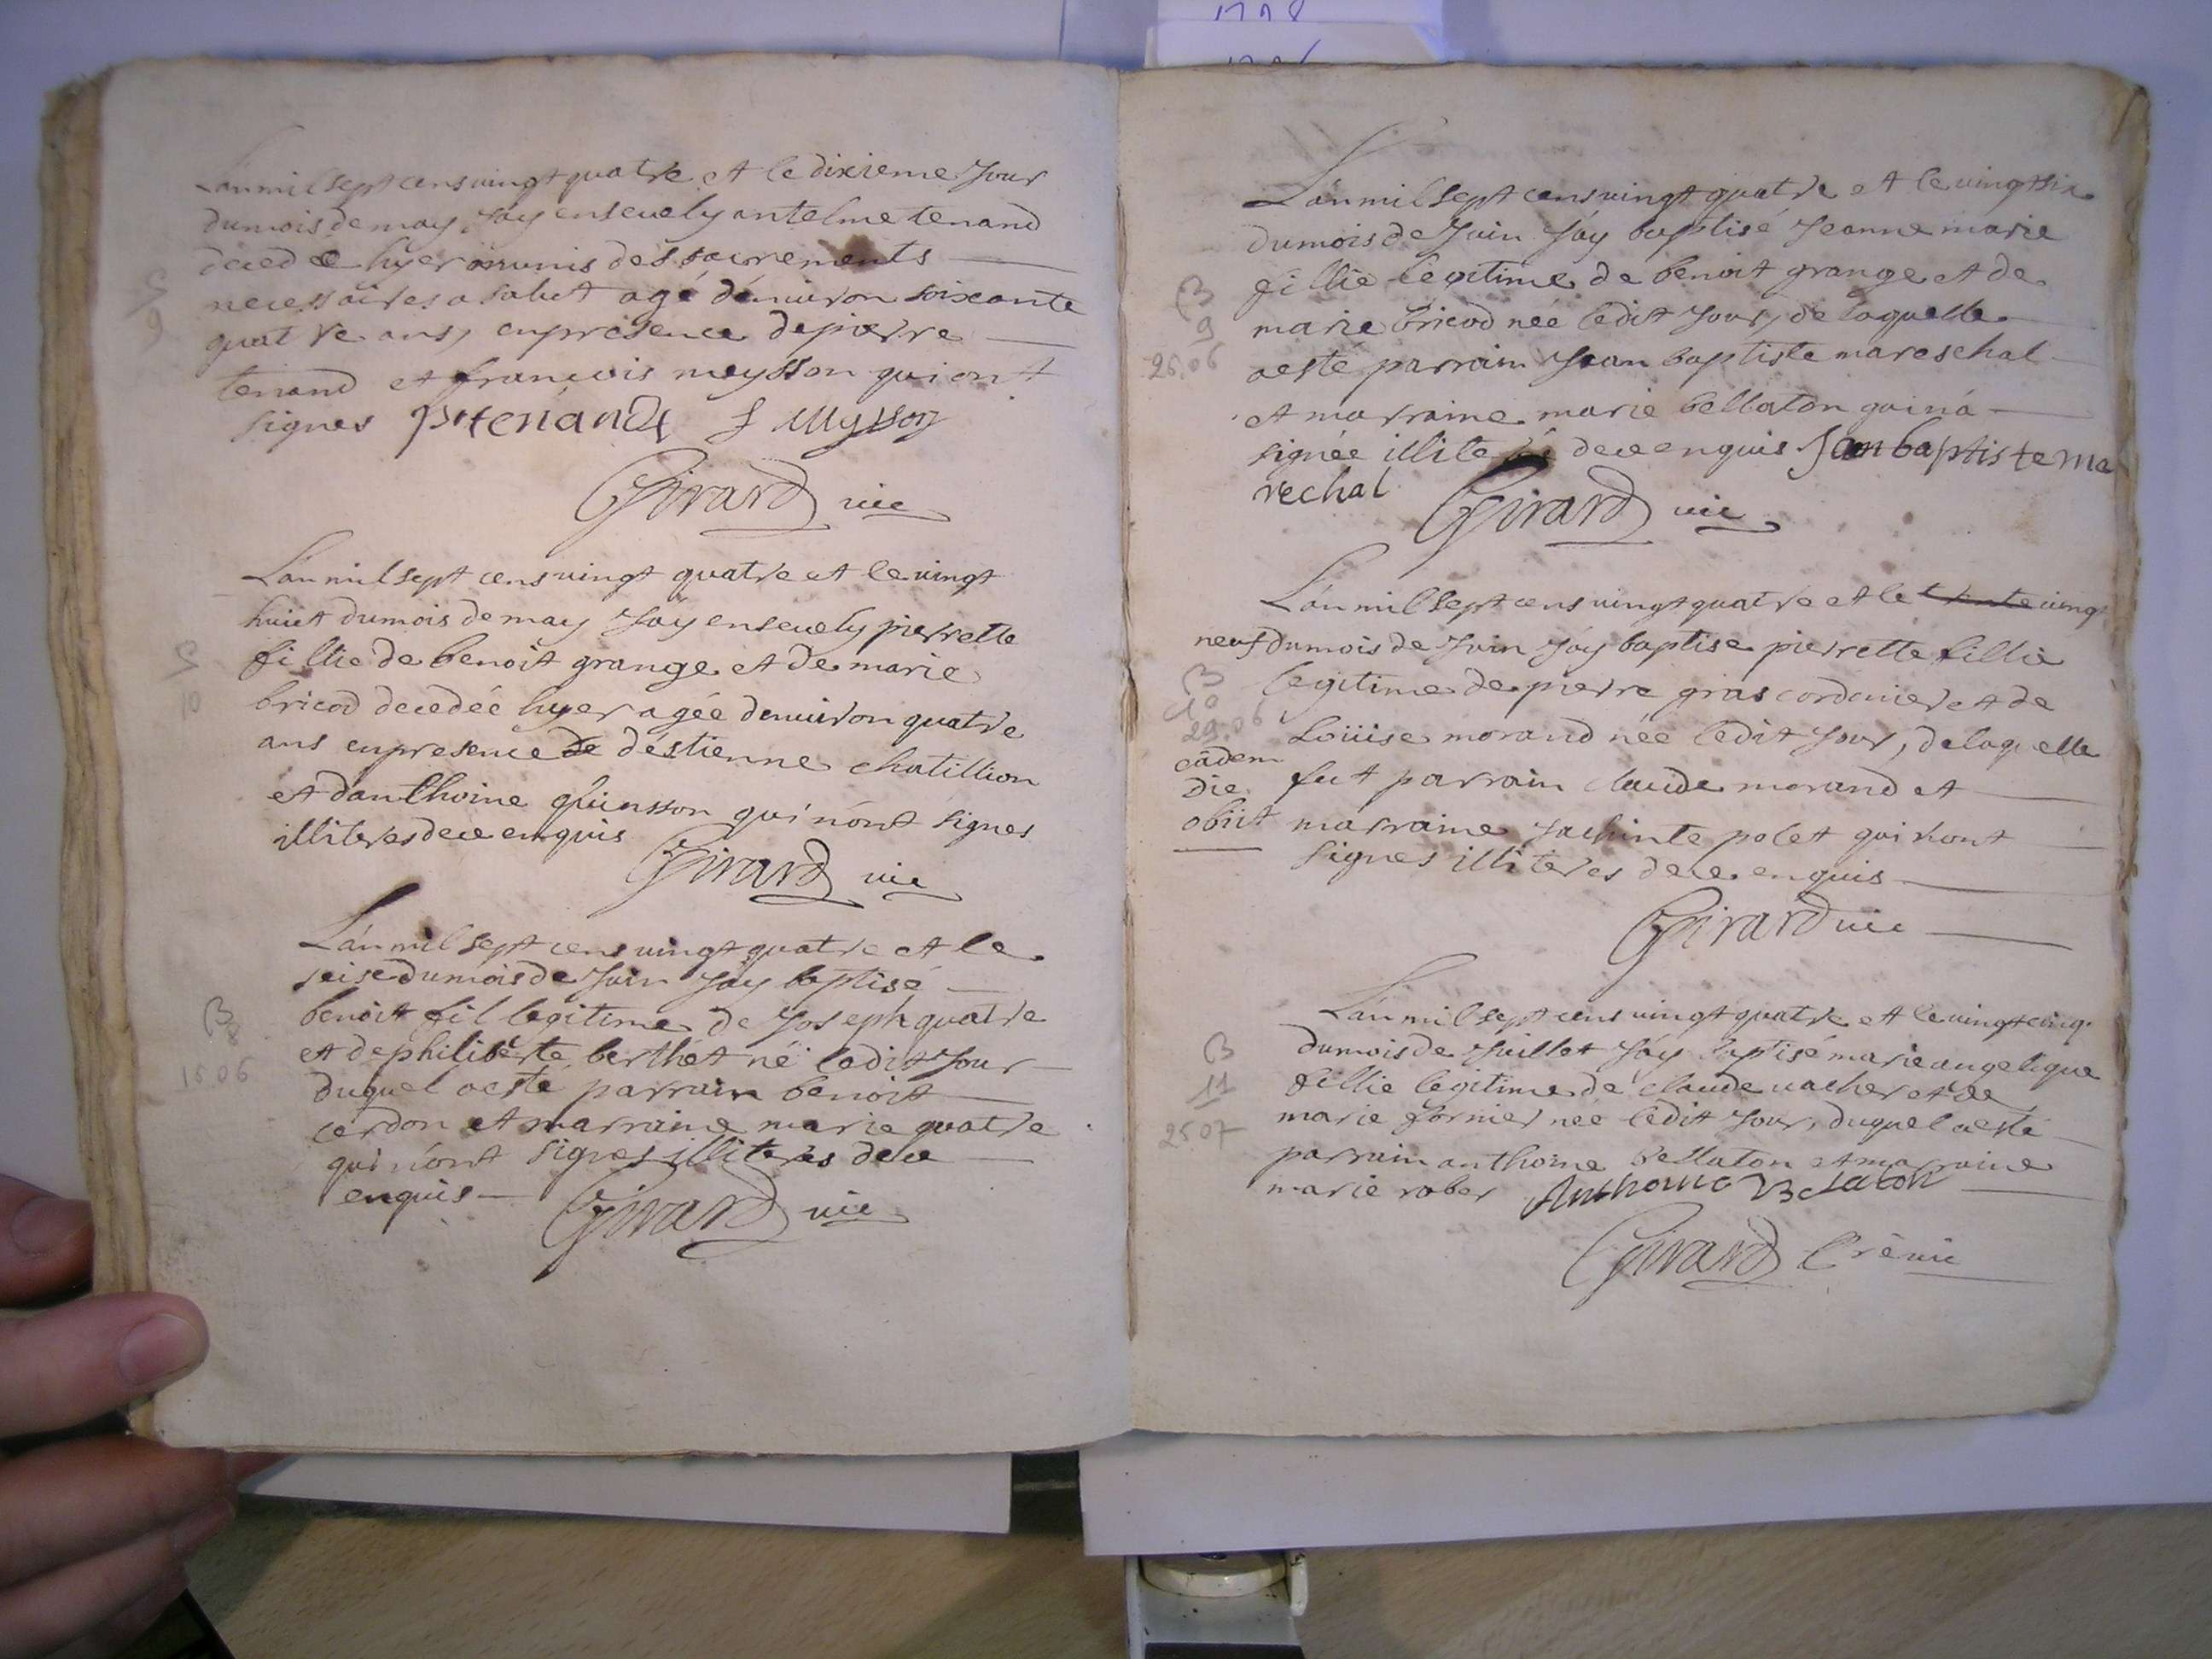 Lánmil sept cens vingt quatre et le dixieme Jour
dumois de may Jáy ensevely antelme tenand
decedé hyer munis des sacrements
S
9
necessaires a salut agé d'énviron soixante
quatre ans, enpresence de pierre
tenand et françois meysson qui ont
signes p tenand f Meysson
Girard vic
Lán mil sept cens vingt quatre et le vingt
huict dumois de may Jáy ensevely pierrette
S
10
fillie de benoit grange et de marie
bricod decedée hyer agée denviron quatre
ans enpresence de déstienne chatillion
et danthoine quinsson qui nónt signes
illiteres dece enquis
Girard vic
Lán mil sept cens vingt quatre et le
seise dumois de Juin Jáy baptisé
B
8
16 06
benoit fil legitime de Joseph quatre
et de philiberte berthét né ledit Jour
duquel aesté parrain benoit
cerdon et marraine marie quatre
qui nónt signes illiteres dece
enquis
Girard vic
Lánmil sept cens vingt quatre et le vingt six
dumois de Juin Jáy baptisé Jeanne marie
B
9
26.06
fillie legitime de benoit grange et de
marie bricod née ledit Jour, de laquelle
aesté parrain Jean baptiste mareschal
et marraine marie bellaton qui ná
signée illiteré dece enquis Jan baptiste ma
rechal
Girard vic
Lán mil sept cens vingt quatre et le trente vingt
neuf dumois de Juin Jáy baptise pierrette fillie
B
10
29.06
legitime de pierre gras cordonier et de
Loüise morand née ledit Jour, de laquelle
eadem
die
obiit
fut parrain claude morand et
marraine Jachinte polet qui nont
signes illiteres dece enquis
Girard vic
Lán mil sept cens vingt quatre et le vingt cinq
dumois de Juillet Jáy baptisé marie angelique
B
11
25 07
fillie legitime de claude vacher et de
marie fornier née ledit Jour, duquel aesté
parrain anthoine bellaton et marraine
marie rober Anthoine Belaton
Girard